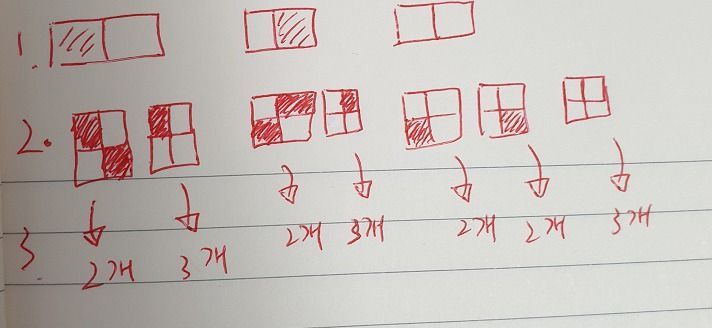 1.
2.
3. 2개 3개 2개 3개 2개 2개 3개